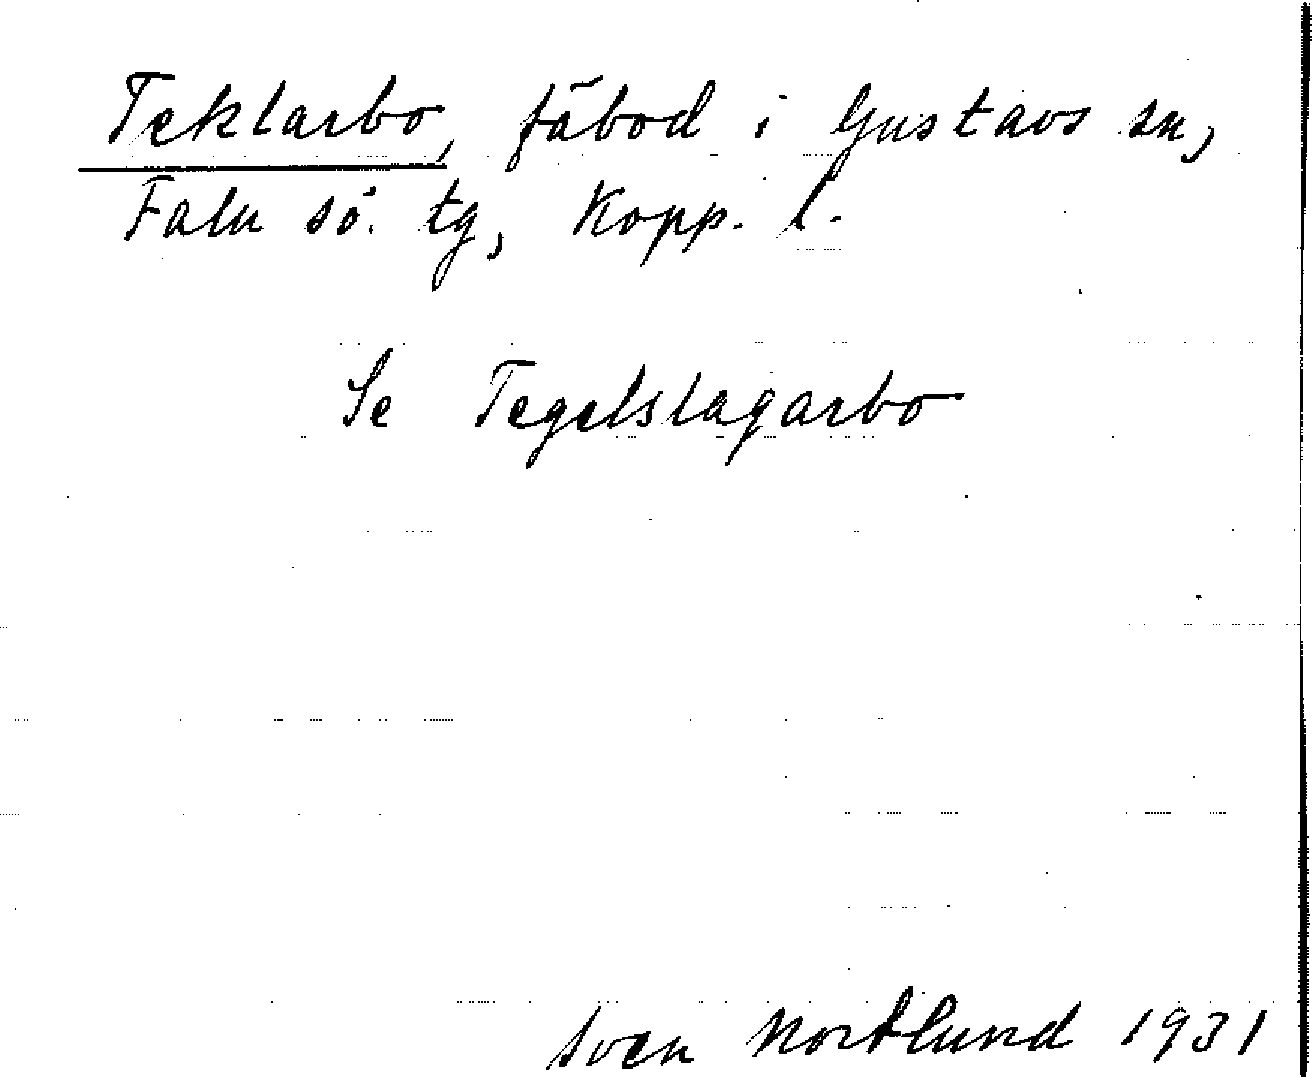 Teklarbo, fäbod i Gustavs sn,
Falu sö. tg, Kopp. l.
Se Tegelslagarbo
Sven Norrlund 1931